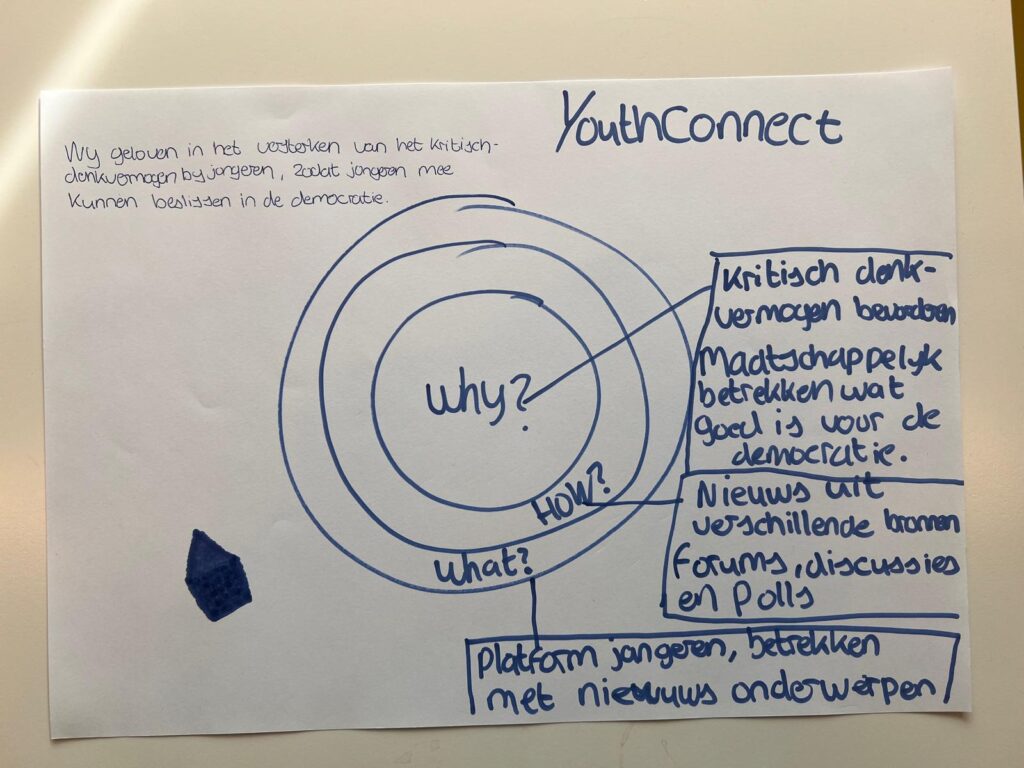 YouthConnect
Wij geloven in het versterken van het kritisch-
denkvermogen bij jongeren, zodat jongeren mee
kunnen beslissen in de democratie.
Why?
HOW?
What?
Kritisch denk-
vermogen bevorderen
Maatschappelijk
betrekken wat
goed is voor de
democratie.
Nieuws uit
verschillende bronnen
Forums, discussies
en Polls
Platform jongeren, betrekken
met nieuws onderwerpen